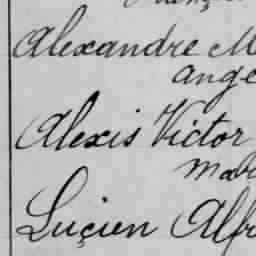 Alexandre M
ange
Alexis Victor
Luçien Alfr